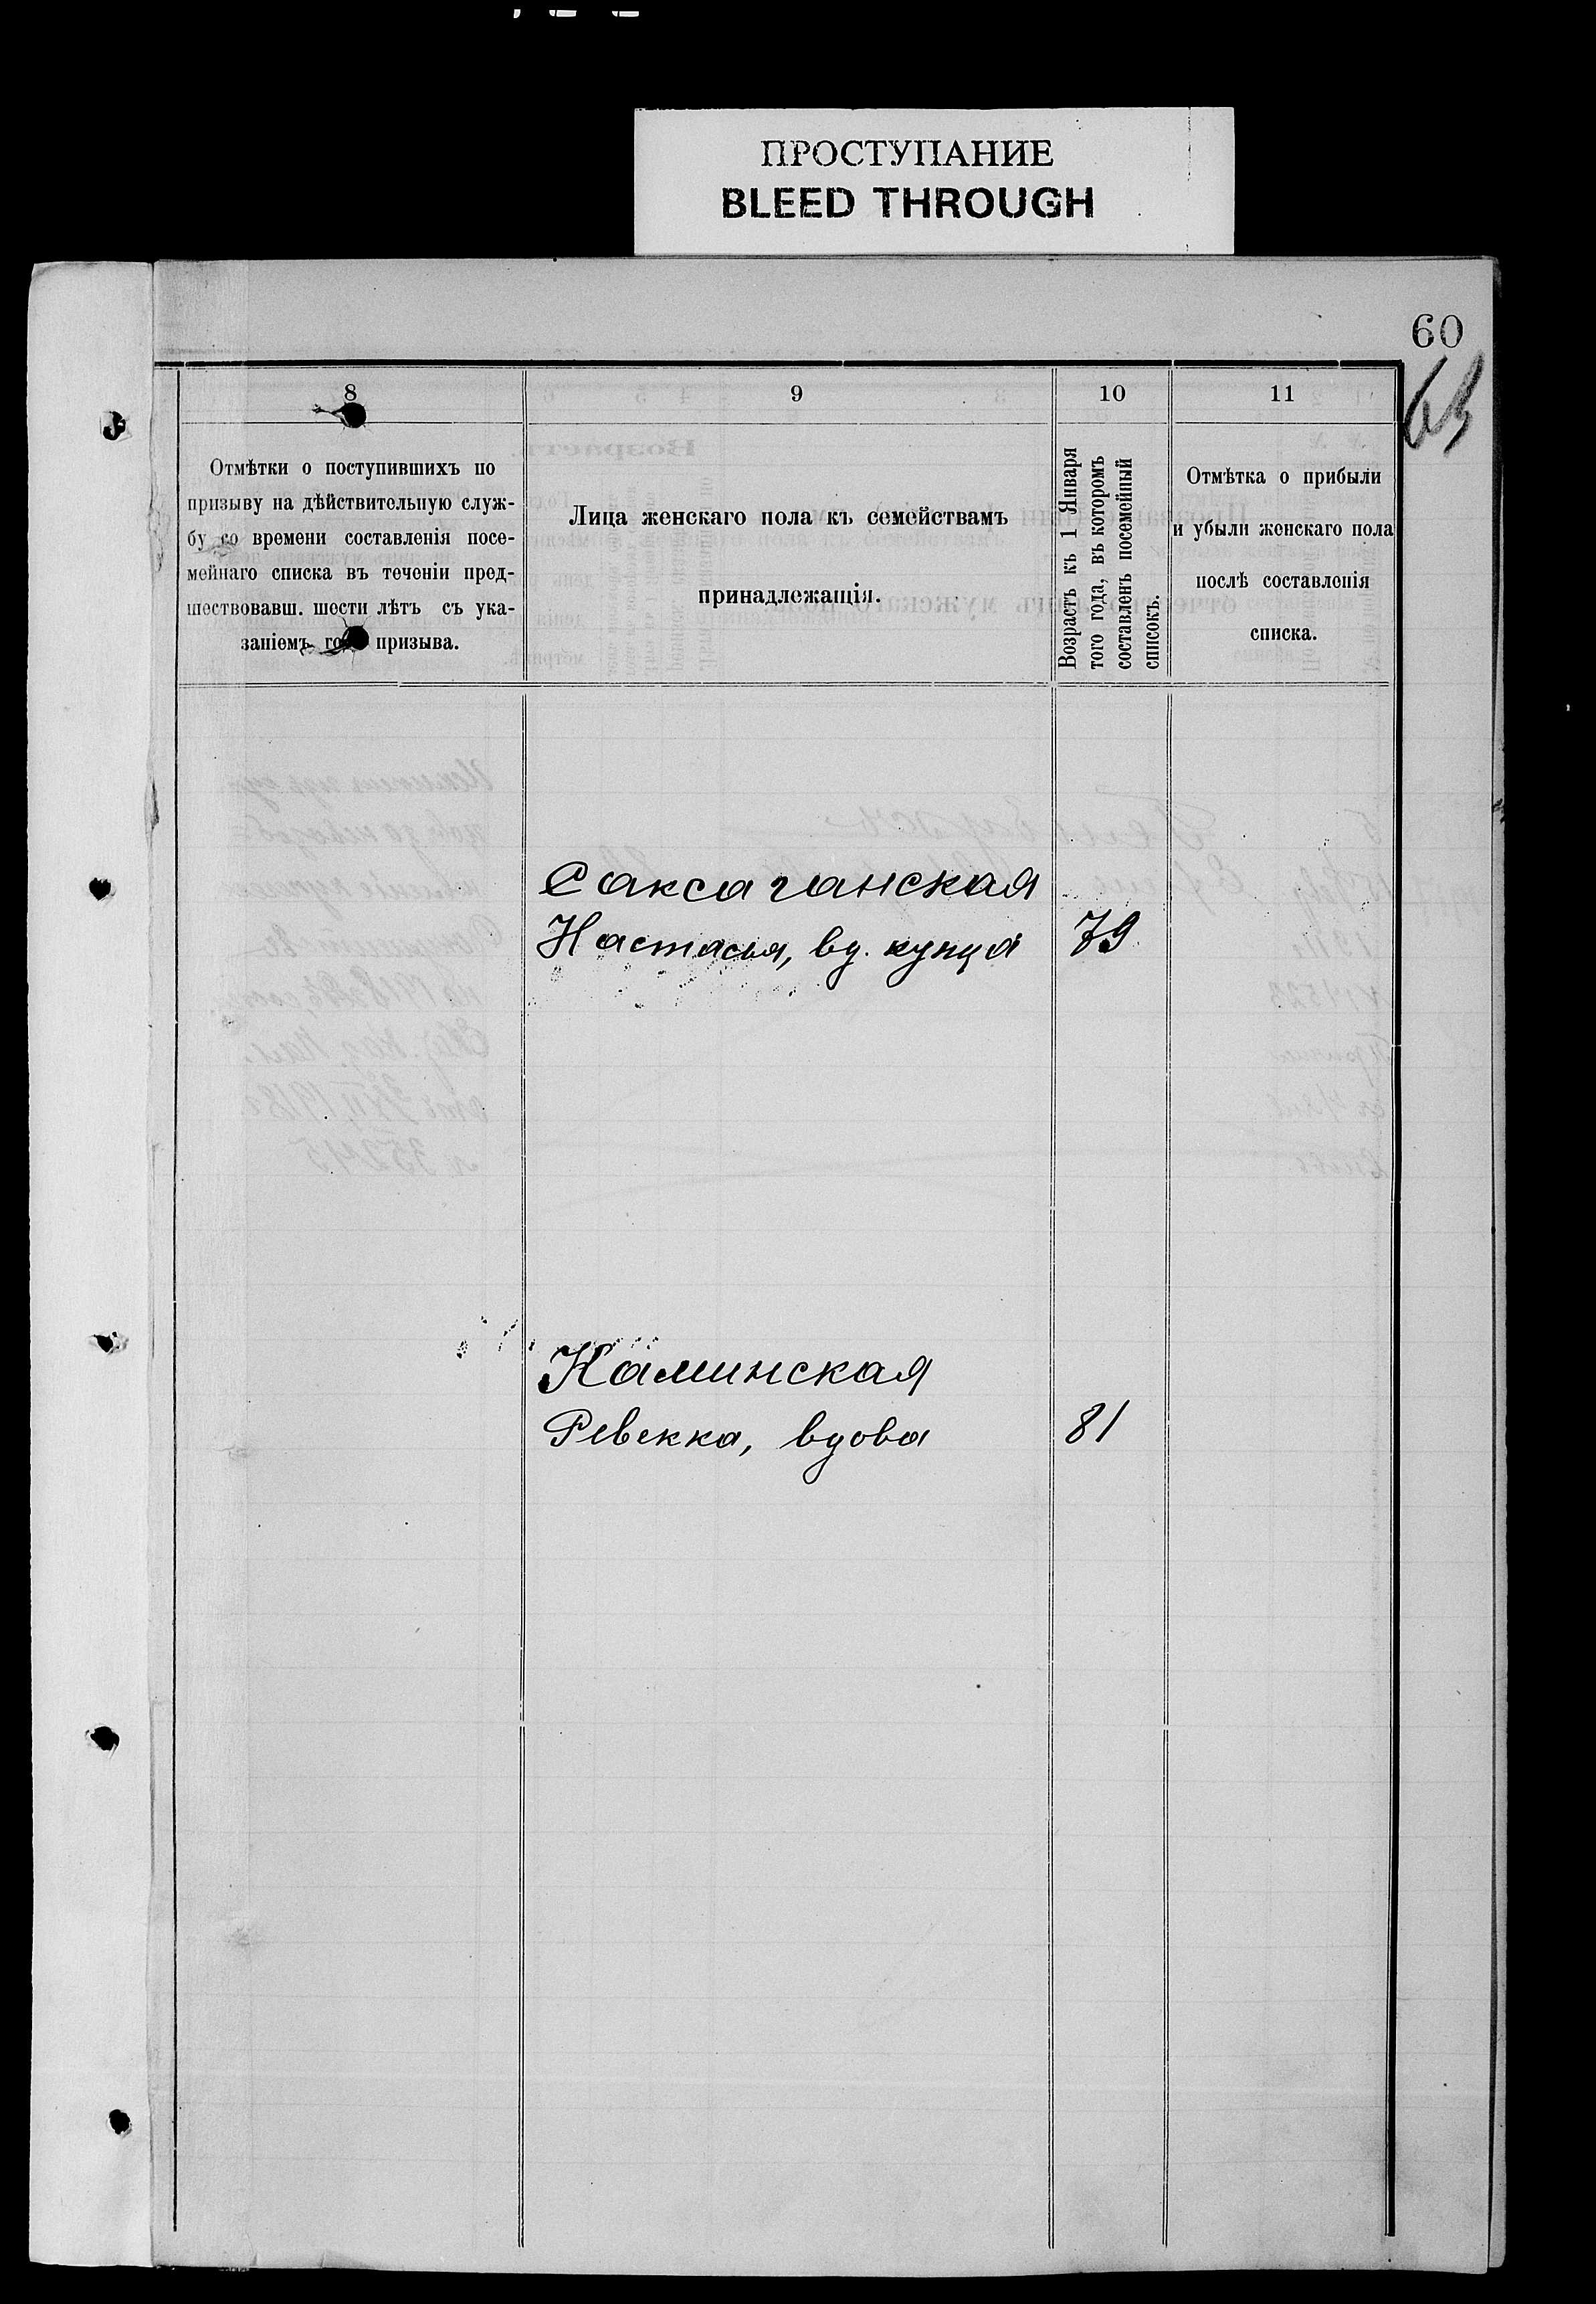 ПРОСТУПАНИЕ
BLEED THROUGH
60
63
8
9
10
11
Отмѣтки о поступившихъ по
призыву на дѣйствительную служ-
бу со времени составленія посе-
мейнаго списка въ теченіи пред-
шествовавш. шести лѣтъ съ ука-
заніемъ призыва.
Лица женскаго пола къ семействамъ
принадлежащія.
Возрастъ къ 1 Января
того года, въ которомъ
составленъ посемейный
списокъ.
Отмѣтка о прибыли
и убыли женскаго пола
послѣ составленія
списка.
Саксаганская
Настасья, вд. купца 79
Каминская
Ревекка, вдова 81